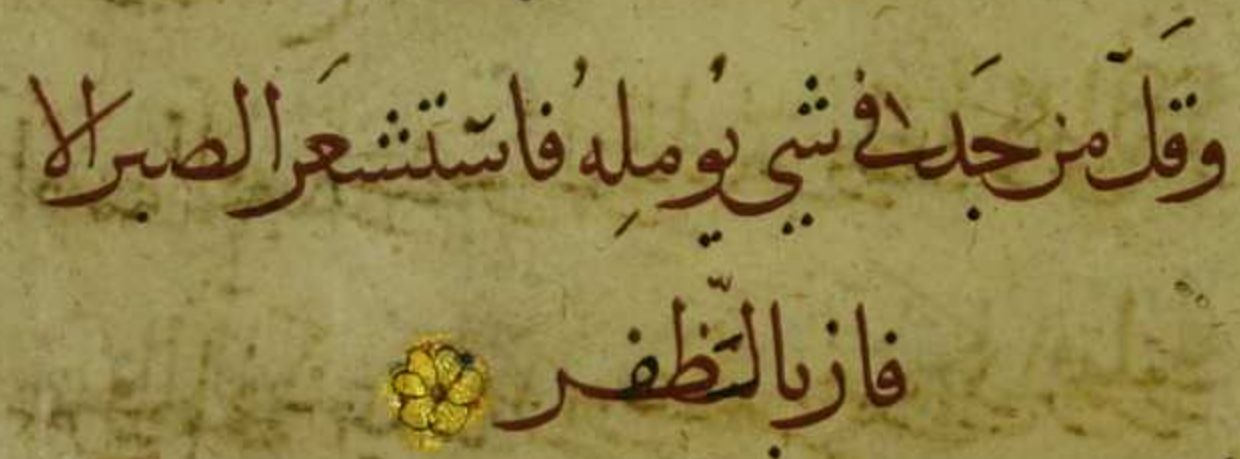 وَقَلّ من جَدَ في شي يُوملِهُ فاستَشعَرَ الصبر الا
فاز بالظَّفر